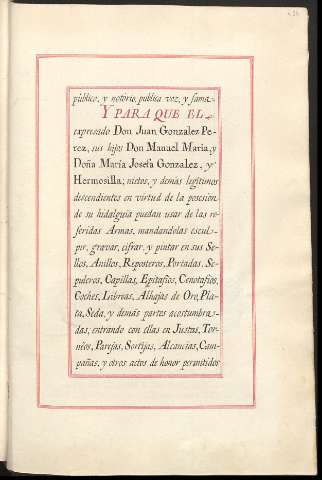 público, y notorio, publica voz, y fama.
Y PARA QUE EL
expresado Don Juan Gonzalez Pe-
rez, sus hijos Don Manuel Maria, y
Doña Maria Josefa Gonzalez, y
Hermosilla; nietos, y demás legitimos
descendientes en virtud de la posesion
de su hidalguia puedan usar de las re-
feridas Armas, mandandolas escul-
pir, gravar, cifrar, y pintar en sus Se-
llos, Anillos, Reposteros, Portadas, Se-
pulcros, Capillas, Epitafios, Cenotafios,
Coches, Libreas, Alhajas de Oro, Pla-
ta, Seda, y demás partes acostumbra-
das, entrando con ellas en Justas, Tor-
néos, Parejas, Sortijas, Alcancias, Cam-
pañas, y otros actos de honor permitidos